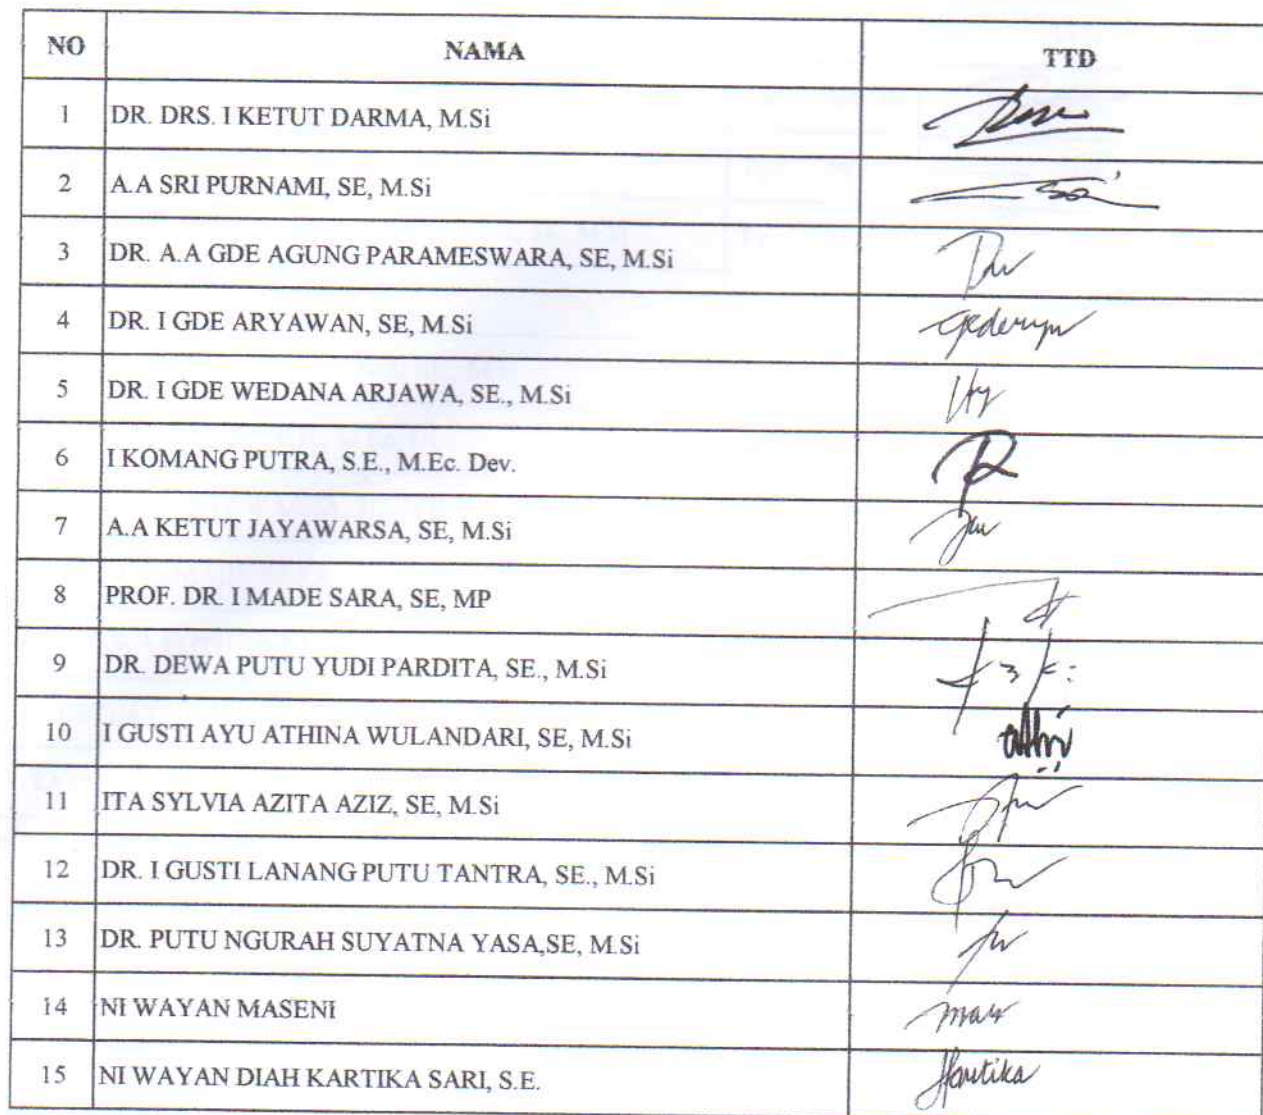 NO NAMA TTD
1 DR. DRS. I KETUT DARMA, M.Si
2 A.A SRI PURNAMI, SE, M.Si
3 DR. A.A GDE AGUNG PARAMESWARA, SE, M.Si
4 DR. I GDE ARYAWAN, SE, M.Si
5 DR. I GDE WEDANA ARJAWA, SE., M.Si
6 I KOMANG PUTRA, S.E., M.Ec. Dev.
7 A.A KETUT JAYAWARSA, SE, M.Si
8 PROF. DR. I MADE SARA, SE, MP
9 DR. DEWA PUTU YUDI PARDITA, SE., M.Si
10 I GUSTI AYU ATHINA WULANDARI, SE, M.Si
11 ITA SYLVIA AZITA AZIZ, SE, M.Si
12 DR. I GUSTI LANANG PUTU TANTRA, SE., M.Si
13 DR. PUTU NGURAH SUYATNA YASA,SE, M.Si
14 NI WAYAN MASENI
15 NI WAYAN DIAH KARTIKA SARI, S.E. Kartika